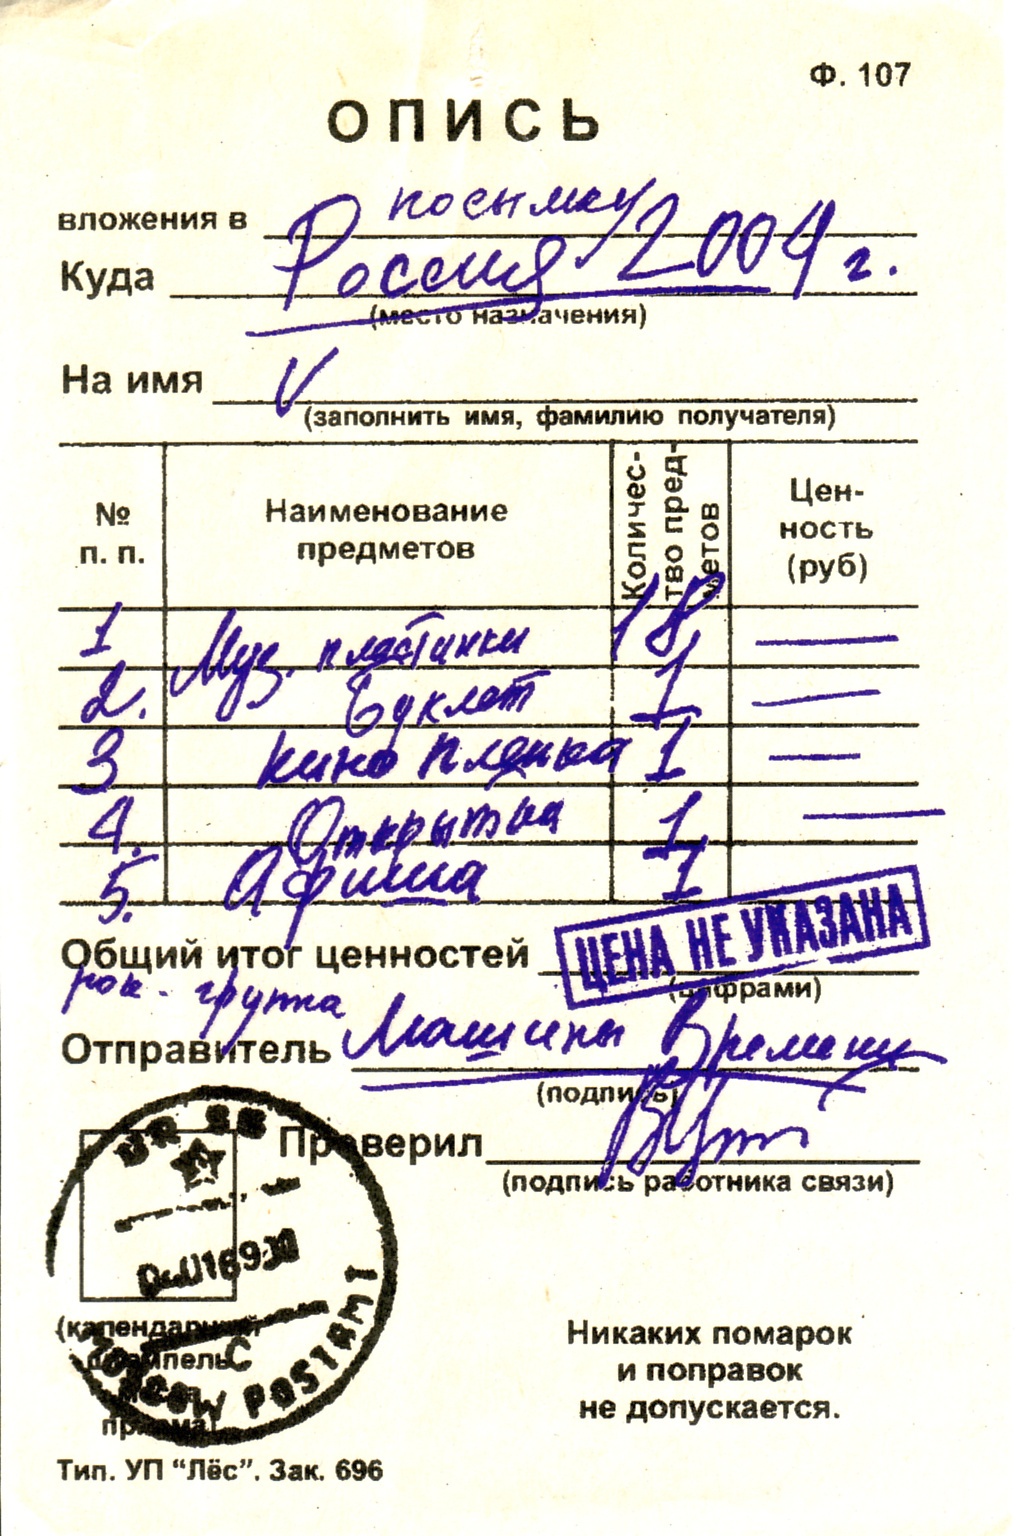 Ф. 107
ОПИСЬ
вложения в посылку
Куда Россия 2004 г.
(место назначения)
На имя V
(заполнить имя, фамилию получателя)
№ п. п. Наименование предметов Количес-тво пред-метов Цен-ность (руб)
1 Муз. пластинки 18, —
2. Буклет 1 —
3 кино пленка 1 —
4. Открытка 1, —
5. Афиша 1
Общий итог ценностей ЦЕНА НЕ УКАЗАНА
(цифрами)
рок-группа
Отправитель Машины Времени
(подпись)
Проверил
(подпись работника связи)
(календарный
штемпель
места
приема)
POSTAMT
Никаких помарок
и поправок
не допускается.
Тип. УП “Лёс”. Зак. 696